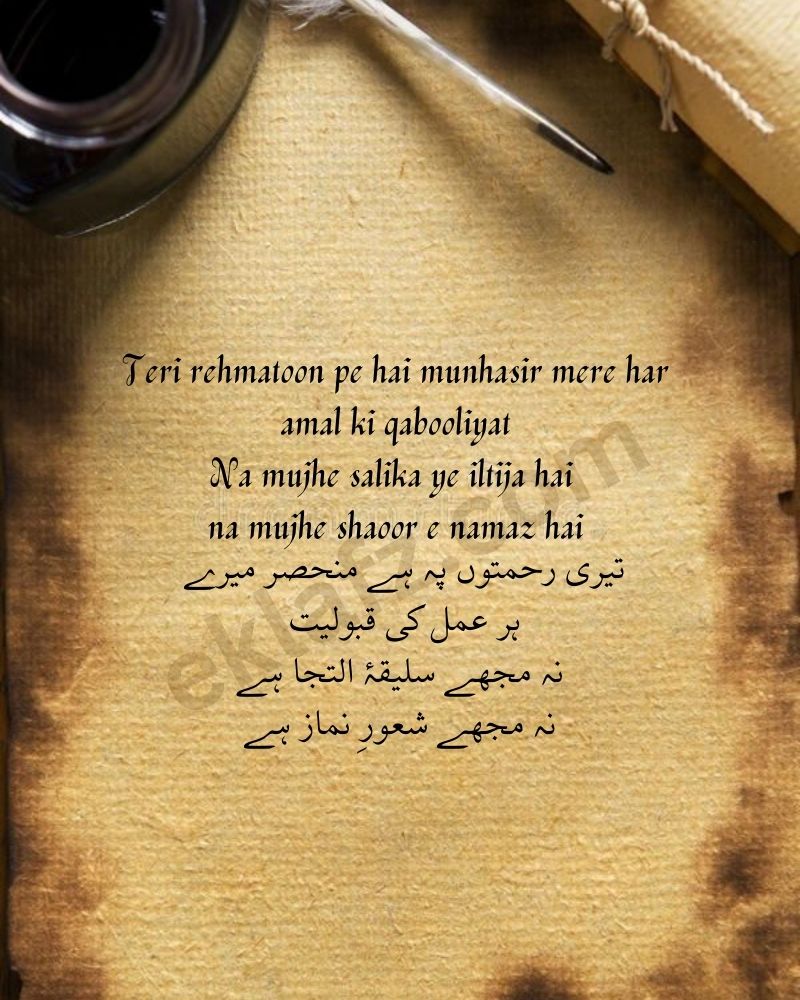 Teri rehmatoon pe hai munhasir mere har
amal ki qabooliyat
Na mujhe salika ye iltija hai
na mujhe shaoor e namaz hai
تیری رحمتوں پہ ہے منحصر میرے
ہر عمل کی قبولیت
نہ مجھے سلیقۂ التجا ہے
نہ مجھے شعورِ نماز ہے